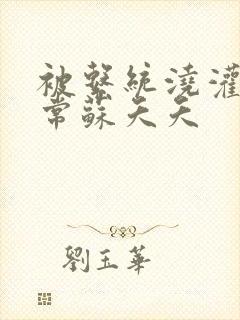 被繫統澆灌
常蘇天天
劉玉華